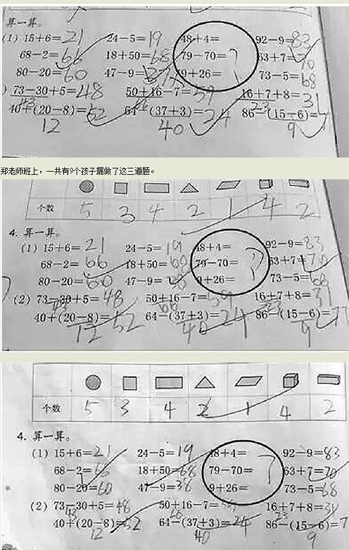 算一算。
(1) 15+6=21 24-5=19 48+4= 92-9=83
68-2=66 18+50=68 79-70= 63+7=70
80-20=60 47-9=38 9+26= 73-5=68
73-30+5=48 50+16-7=59 16+7+8=31
40+(20-8)=52 64-(37+3)=24 86-(15-6)=7
12 40 9
郑老师班上,一共有9个孩子漏做了这三道题。
个数 5 3 4 2 1 4 2
4. 算一算。
(1) 15+6=21 24-5=19 48+4= 92-9=83
68-2=66 18+50=68 79-70= 63+7=70
80-20=60 47-9=38 9+26= 73-5=68
(2) 73-30+5=48 50+16-7=59 16+7+8=31
40+(20-8)=52 64-(37+3)=24 86-(15-6)=7
12 40 9
个数 5 3 4 2 1 4 2
4. 算一算。
(1) 15+6=21 24-5=19 48+4= 92-9=83
68-2=66 18+50=68 79-70= 63+7=70
80-20=60 47-9=38 9+26= 73-5=68
(2) 73-30+5=48 50+16-7= 16+7+8=31
40+(20-8)=52 64-(37+3)=24 86-(15-6)=7
12 40 9